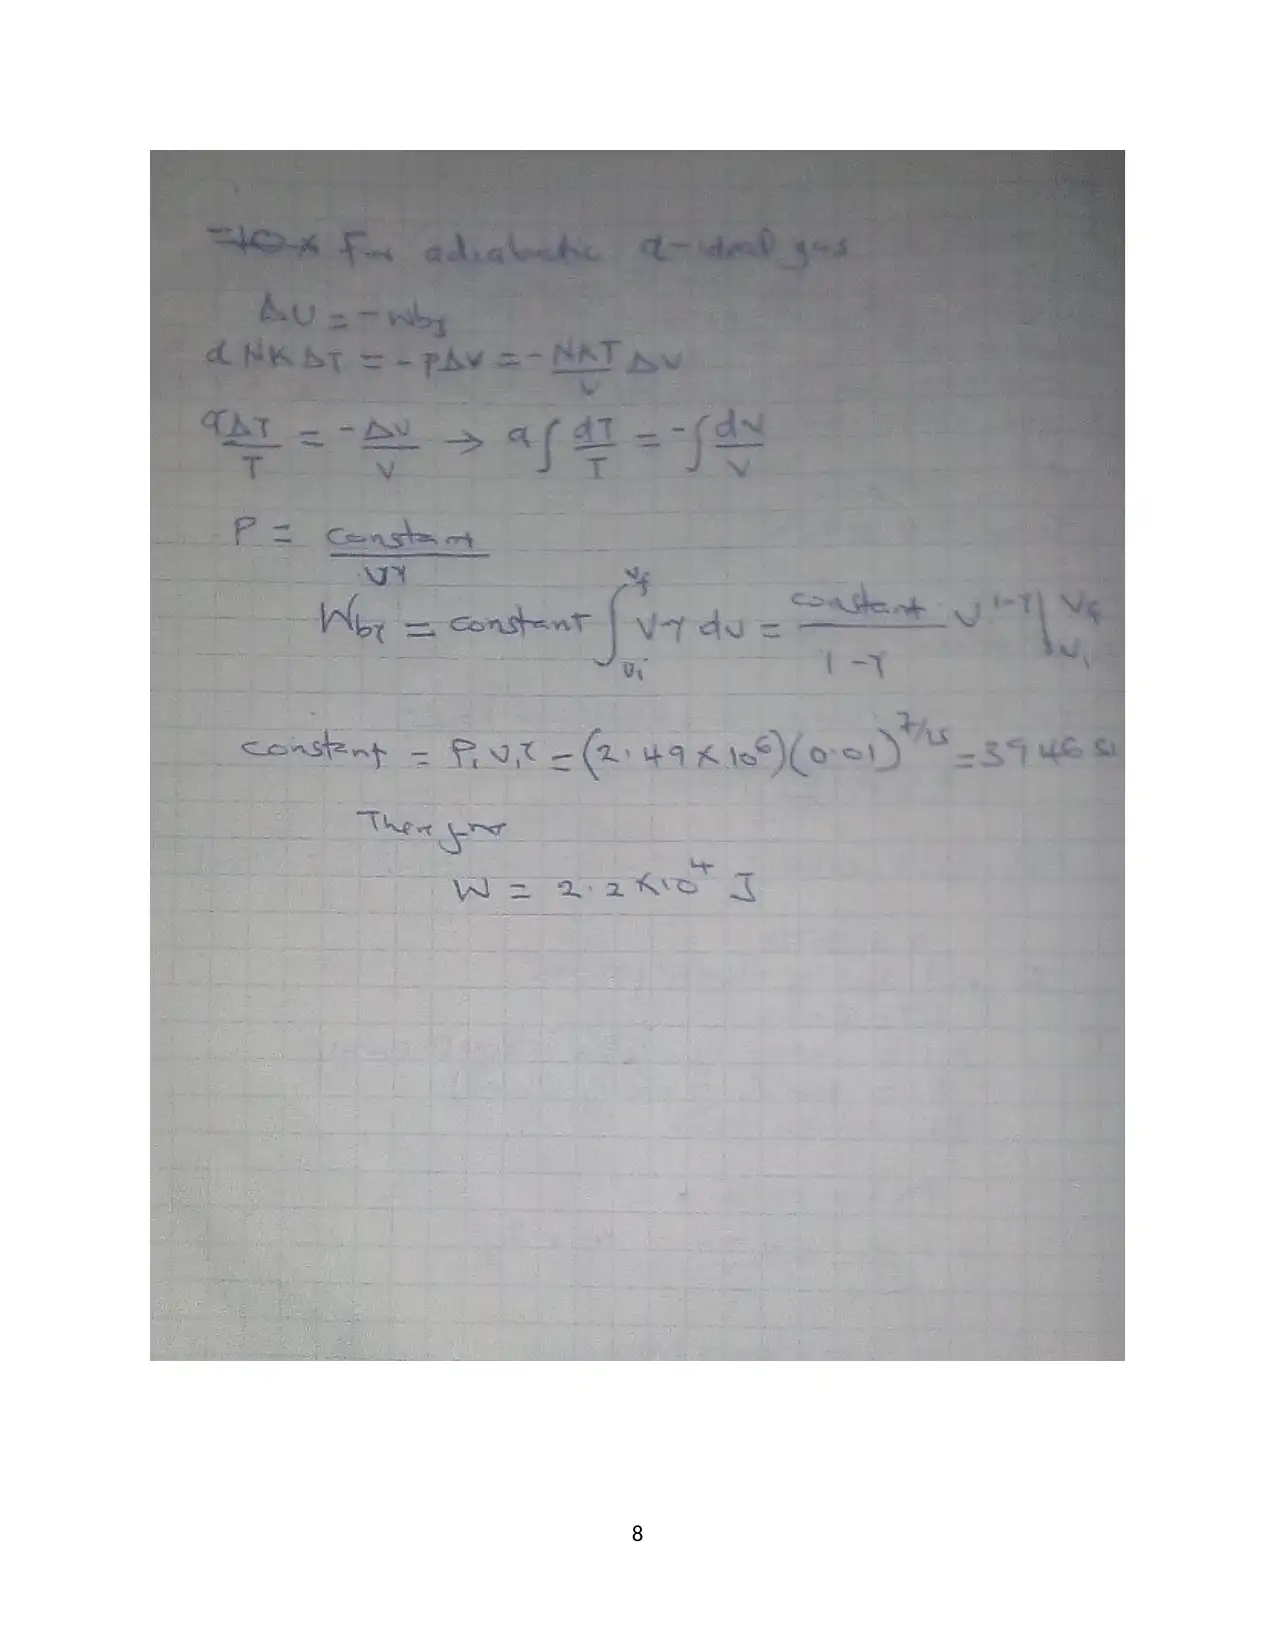 =10× For adiabatic α-ideal gas
ΔU = - Wby
αNKΔT = - PΔV = - NKT/V ΔV
αΔT/T = - ΔV/V → α∫ dT/T = -∫ dV/V
P = constant/Vγ
Wby = constant ∫Vi^Vf V-γ dV = constant/1-γ V^1-γ |Vi^Vf
constant = P, V,γ = (2.49×10^6)(0.01)^7/5 = 3946 SI
Therefore
W = 2.2×10^4 J
8